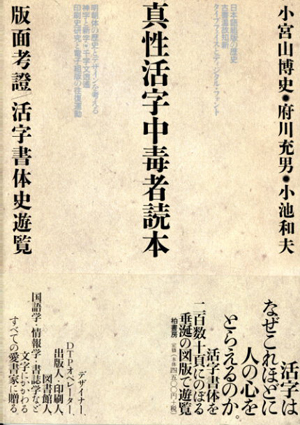 小宮山博史●府川充男●小池和夫
日本語組版の歴史
タイプフェイスとディジタル・フォント
真性活字中毒者読本
明朝体の歴史とデザインを考える
印刷史研究と電子組版の往還運動
版面考證/活字書体史遊覧
活字は
なぜこれほどに
人の心を
とらえるのか。
活字書体を
一百数十頁にのぼる
垂涎の図版で遊覧
柏書房
デザイナー、
DTPオペレーター、
出版人・印刷人、
図書館人、
国語学・情報学・書誌学など
文字にかかわる
すべての愛書家に贈る